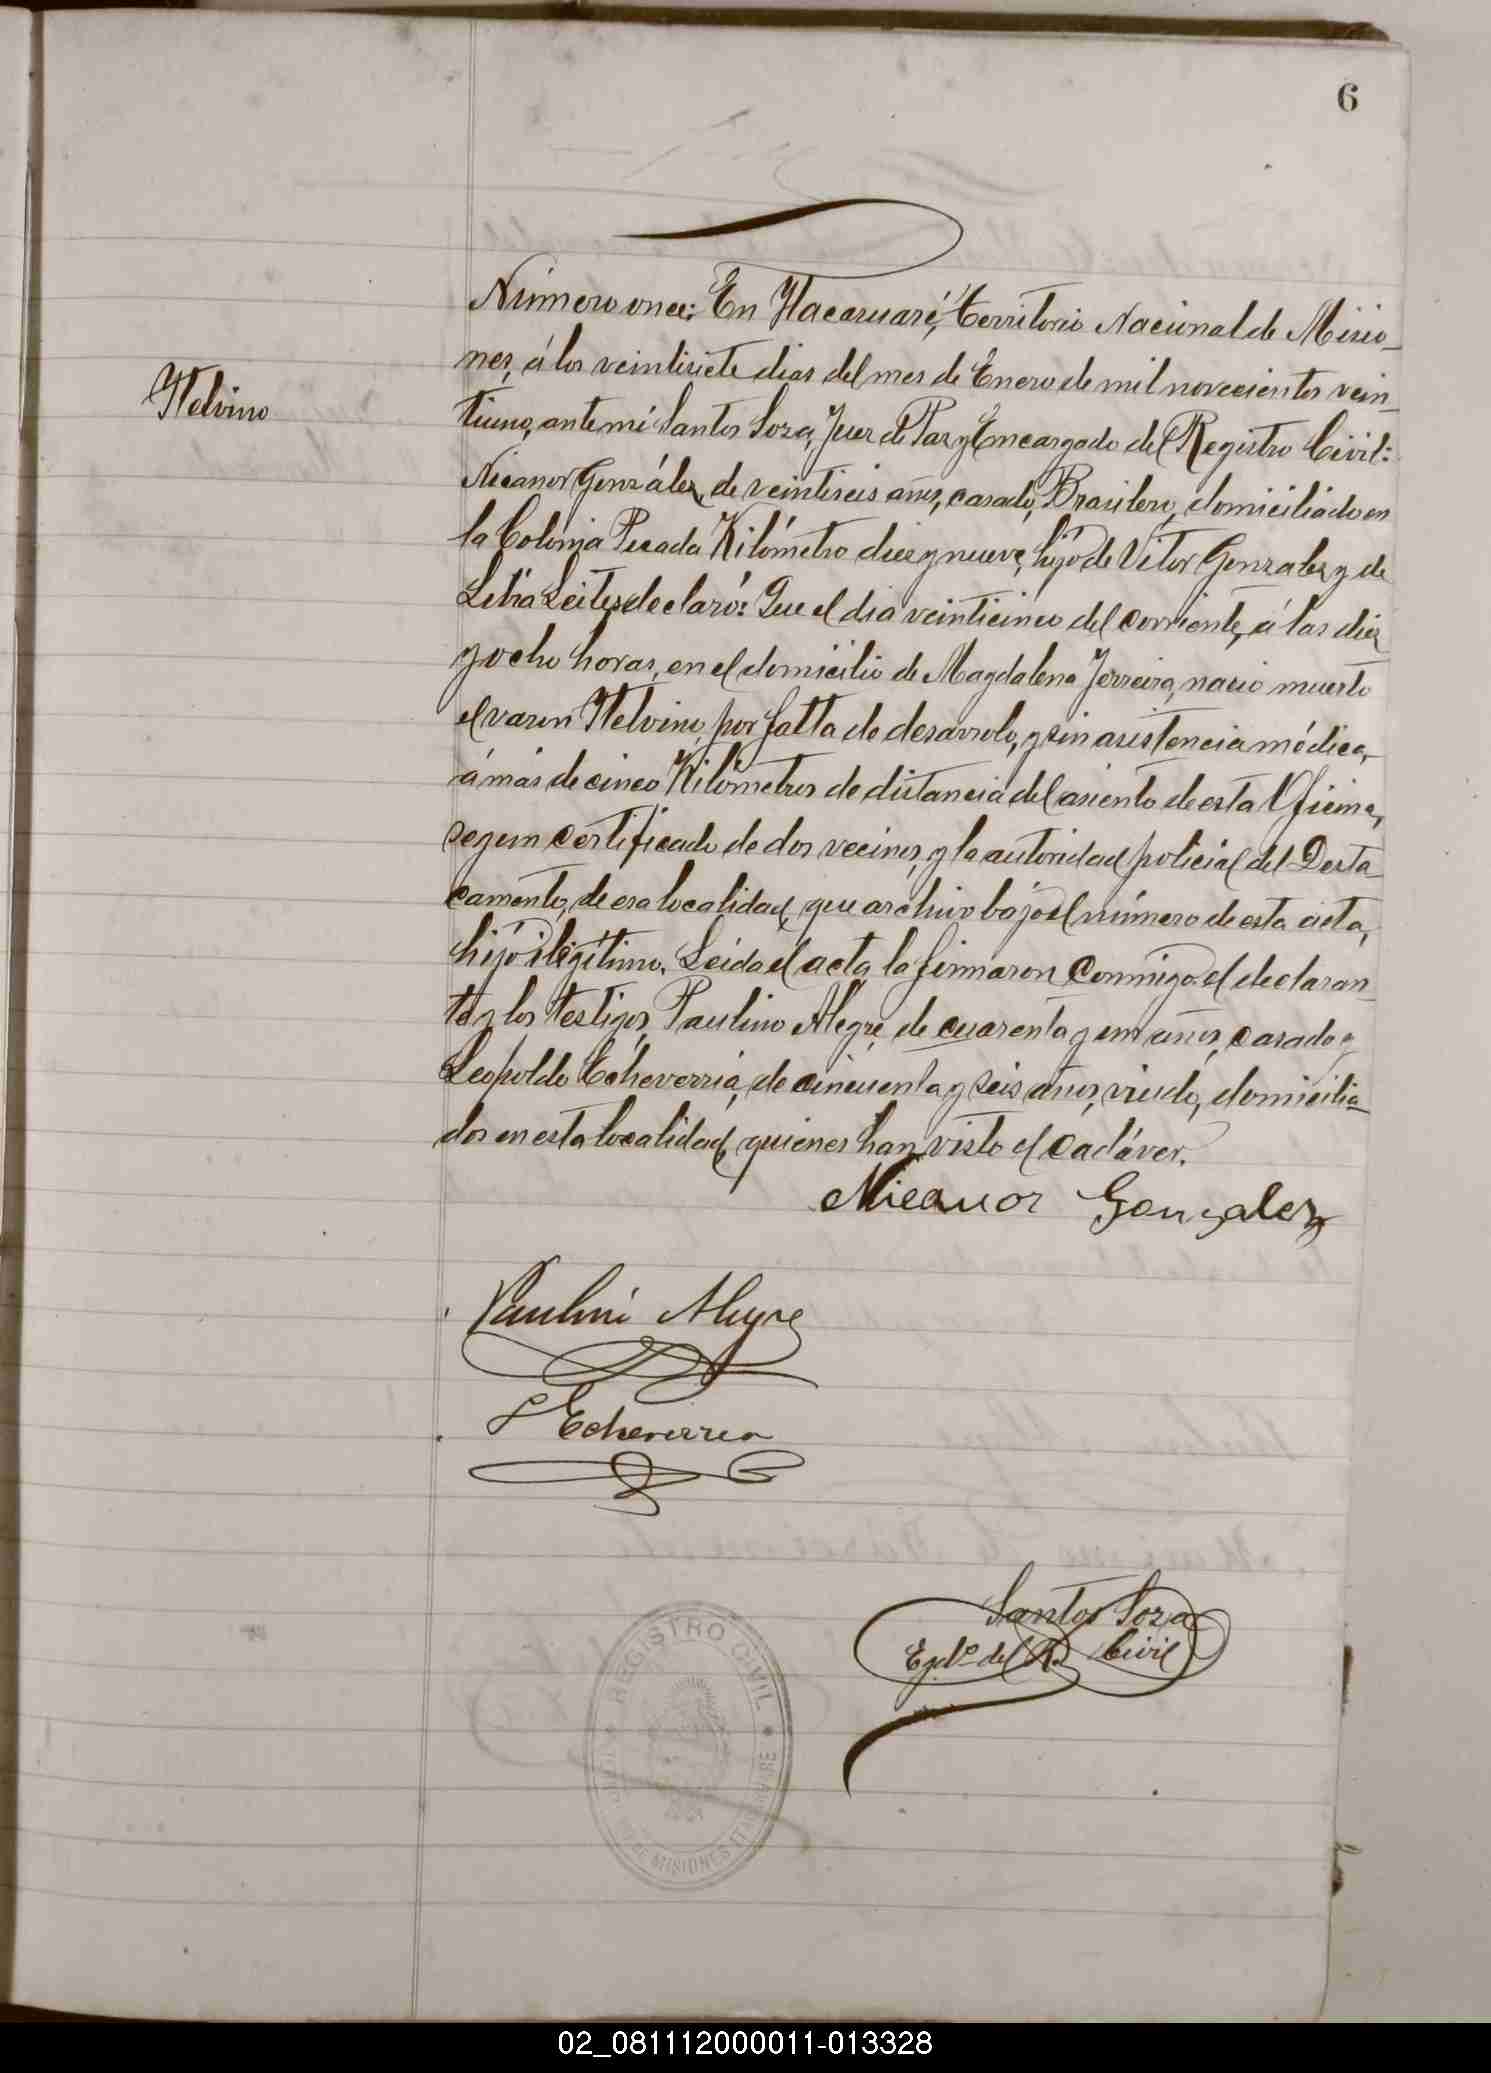 6
Número once: En Itacaruaré, Territorio Nacional de Misio-
nes, á los veintisiete dias del mes de Enero de mil novecientos vein-
Itelvino
tiuno, ante mí Santos Soza, Juez de Paz y Encargado del Registro Civil:
Nicanor González, de veintiseis años, casado, Brasilero, domiciliado en
la Colonia Picada Kilómetro diez y nueve, hijo de Vitor Gonzalez y de
Leites, declaró: Que el dia veinticinco del corriente, á las diez
y ocho horas, en el domicilio de Magdalena Ferreira, nació muerto
el varon Itelvino, por falta de desarrolo, y sin asistencia médica,
á más de cinco Kilómetros de distancia del asiento de esta Oficina,
segun certificado de dos vecinos, y la autoridad policial del Desta-
camento, de esa localidad, que archivo bajo el número de esta acta,
hijo ilegítimo. Leida el acta, la firmaron conmigo el declaran-
te y los testigos, Paulino Alegre, de cuarenta y un años, casado y
Leopoldo Echeverria, de cincuenta y seis años, viudo, domicilia-
dos en esta localidad, quienes han visto el cadáver.
Nicanor Gonzalez
Paulino Alegre
L Echeverria
Santos Soza
Egdo. del R. Civil
REGISTRO CIVIL
MISIONES ITACARUARE
02_081112000011-013328